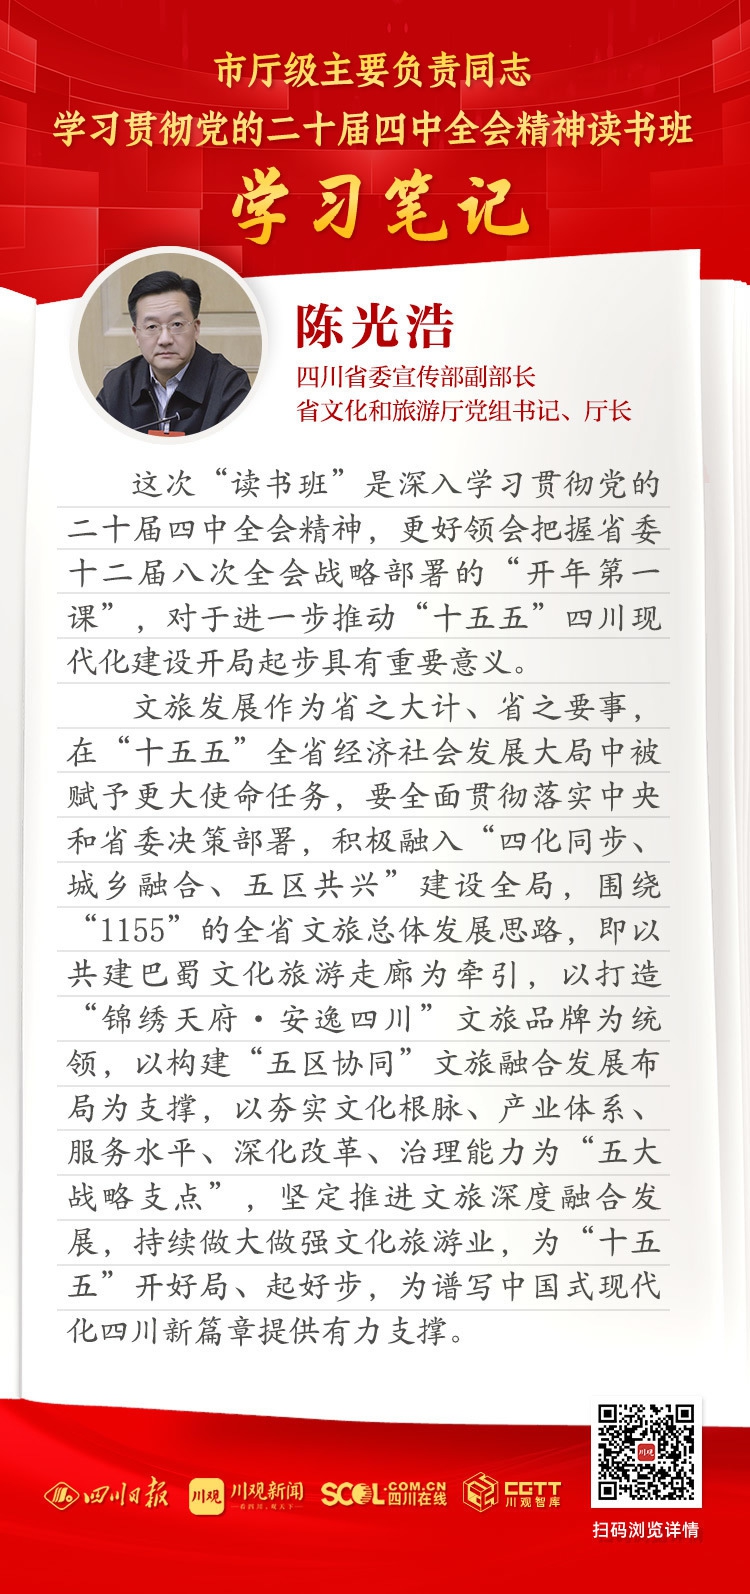 市厅级主要负责同志
学习贯彻党的二十届四中全会精神读书班
学习笔记
陈光浩
四川省委宣传部副部长
省文化和旅游厅党组书记、厅长
这次“读书班”是深入学习贯彻党的
二十届四中全会精神，更好领会把握省委
十二届八次全会战略部署的“开年第一
课”，对于进一步推动“十五五”四川现
代化建设开局起步具有重要意义。
文旅发展作为省之大计、省之要事，
在“十五五”全省经济社会发展大局中被
赋予更大使命任务，要全面贯彻落实中央
和省委决策部署，积极融入“四化同步、
城乡融合、五区共兴”建设全局，围绕
“1155”的全省文旅总体发展思路，即以
共建巴蜀文化旅游走廊为牵引，以打造
“锦绣天府·安逸四川”文旅品牌为统
领，以构建“五区协同”文旅融合发展布
局为支撑，以夯实文化根脉、产业体系、
服务水平、深化改革、治理能力为“五大
战略支点”，坚定推进文旅深度融合发
展，持续做大做强文化旅游业，为“十五
五”开好局、起好步，为谱写中国式现代
化四川新篇章提供有力支撑。
四川日报
川观 川观新闻
一看四川，观天下一
SCOL.COM.CN
四川在线
CGTT
川观智库
川观
扫码浏览详情